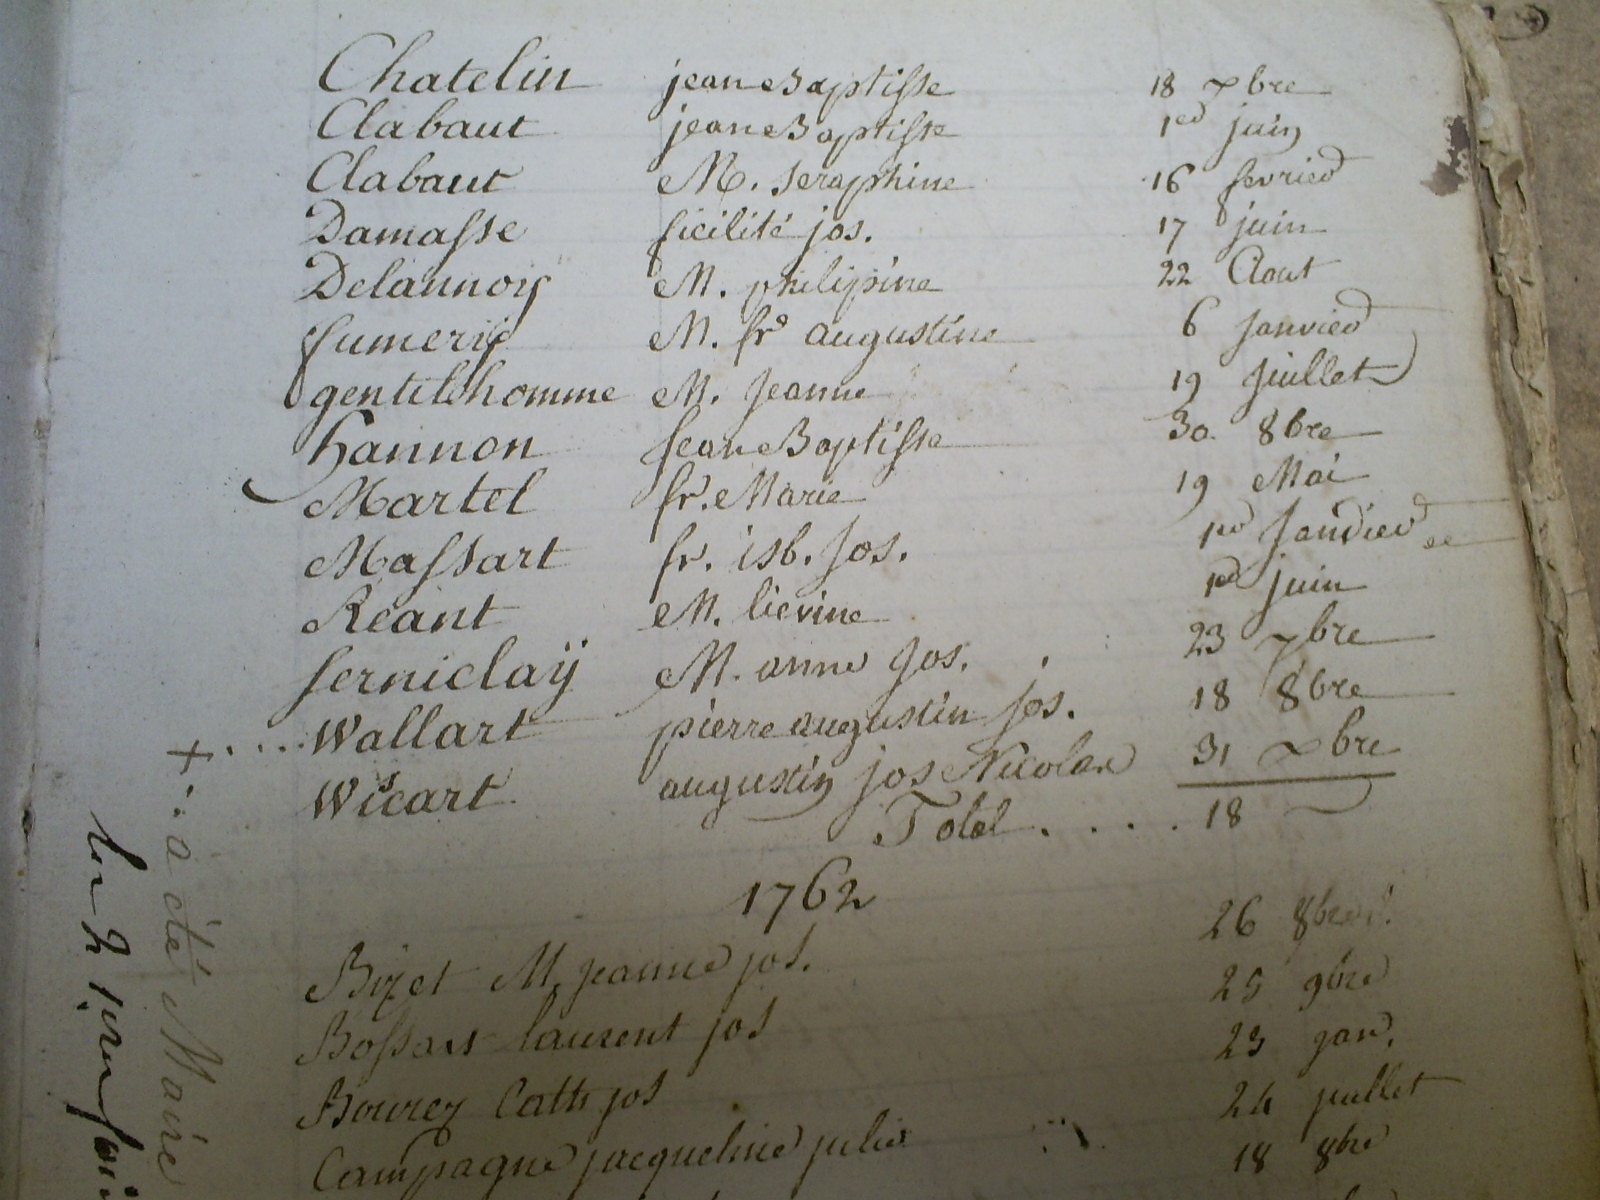 Chatelin jean Baptisse 18 7bre
Clabaut jean Baptiste 1er juin
Clabaut M. Seraphine 16 fevrier
Damasse ficilité jos. 17 juin
Delannoy M. philipine 22 Aout
fumerij M. fr. augustine 6 Janvier
gentilhomme M. Jeanne 19 Juillet
hannon Jean Baptisse 30 8bre
Martel fr. Marie 19 Mai
Massart fr. isb. Jos. 1er Janvier
Reant M. lievine 1er juin
Serniclaÿ M. anne Jos. 23 7bre
+ .... Wallart pierre augustin jos. 18 8bre
Wicart augustin jos Nicolas 31 7bre
Total .... 18
1762
Bizet M. Jeanne jos. 26 8bre
Bossart laurent jos 25 9bre
Bourez Cath jos 23 janv.
Campagne jacqueline julie 24 juillet
18 8bre
+ . a été Maire